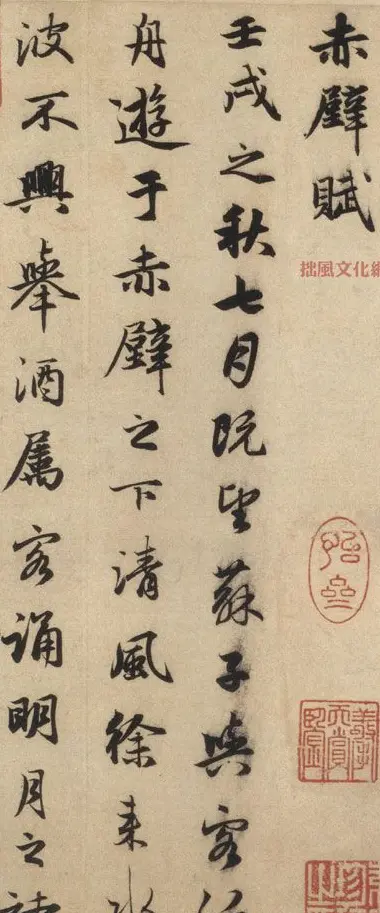 赤壁賦
壬戌之秋七月既望蘇子與客
舟遊于赤壁之下清風徐来水
波不興舉酒屬客誦明月之
拙風文化網